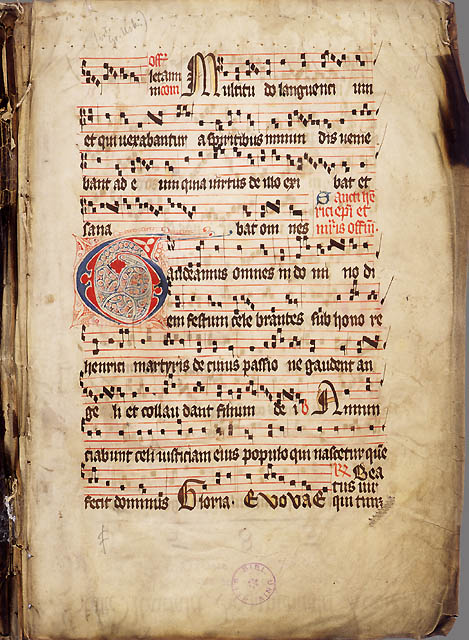 off̄
letam
in com Multitu do languenti um
et qui uexabantur a spiritibus inmun dis uenie
bant ad e um quia uirtus de illo exi bat et
sana bat om nes Sancti hē
rici ep̄i et
m̄ris offm̄.
Gaudeamus omnes in do mi no di
em festum cele brantes sub hono re
henrici martyris de cuius passio ne gaudent an
ge li et collau dant filium de i Annun
ciabunt celi iusticiam eius populo qui nascetur quē
fecit dominus Gloria. EVOVAE Bea
tus uir
qui tim